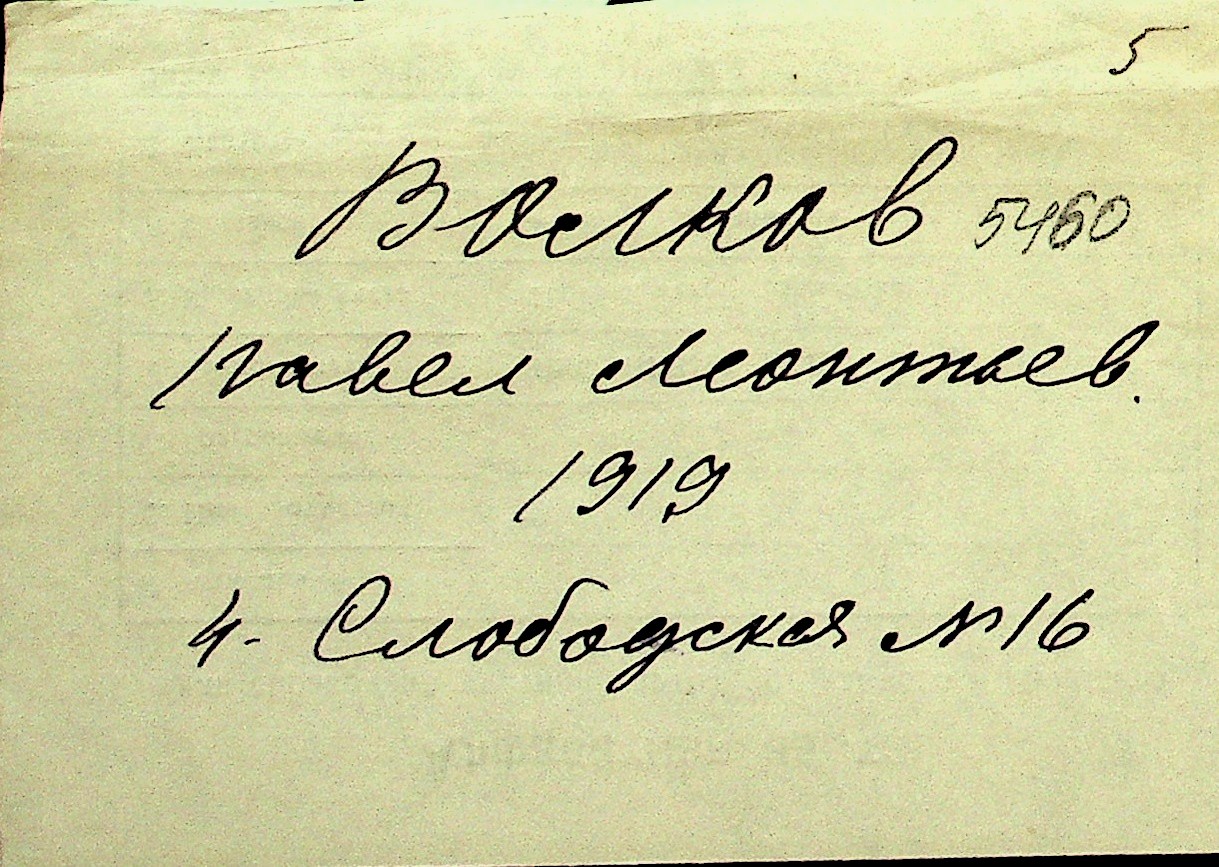 5
Волков 5460
Павел Леонтьев.
1919
4. Слободская № 16